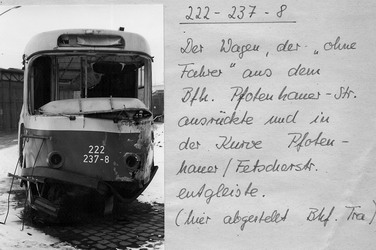 222
237-8
222-237-8
Der Wagen, der „ohne
Fahrer" aus dem
Bfh. Pfotenhauer-Str.
ausrückte und in
der Kurve Pfoten-
hauer/Fetscherstr.
entgleiste.
(hier abgestellt Bhf. Tra)